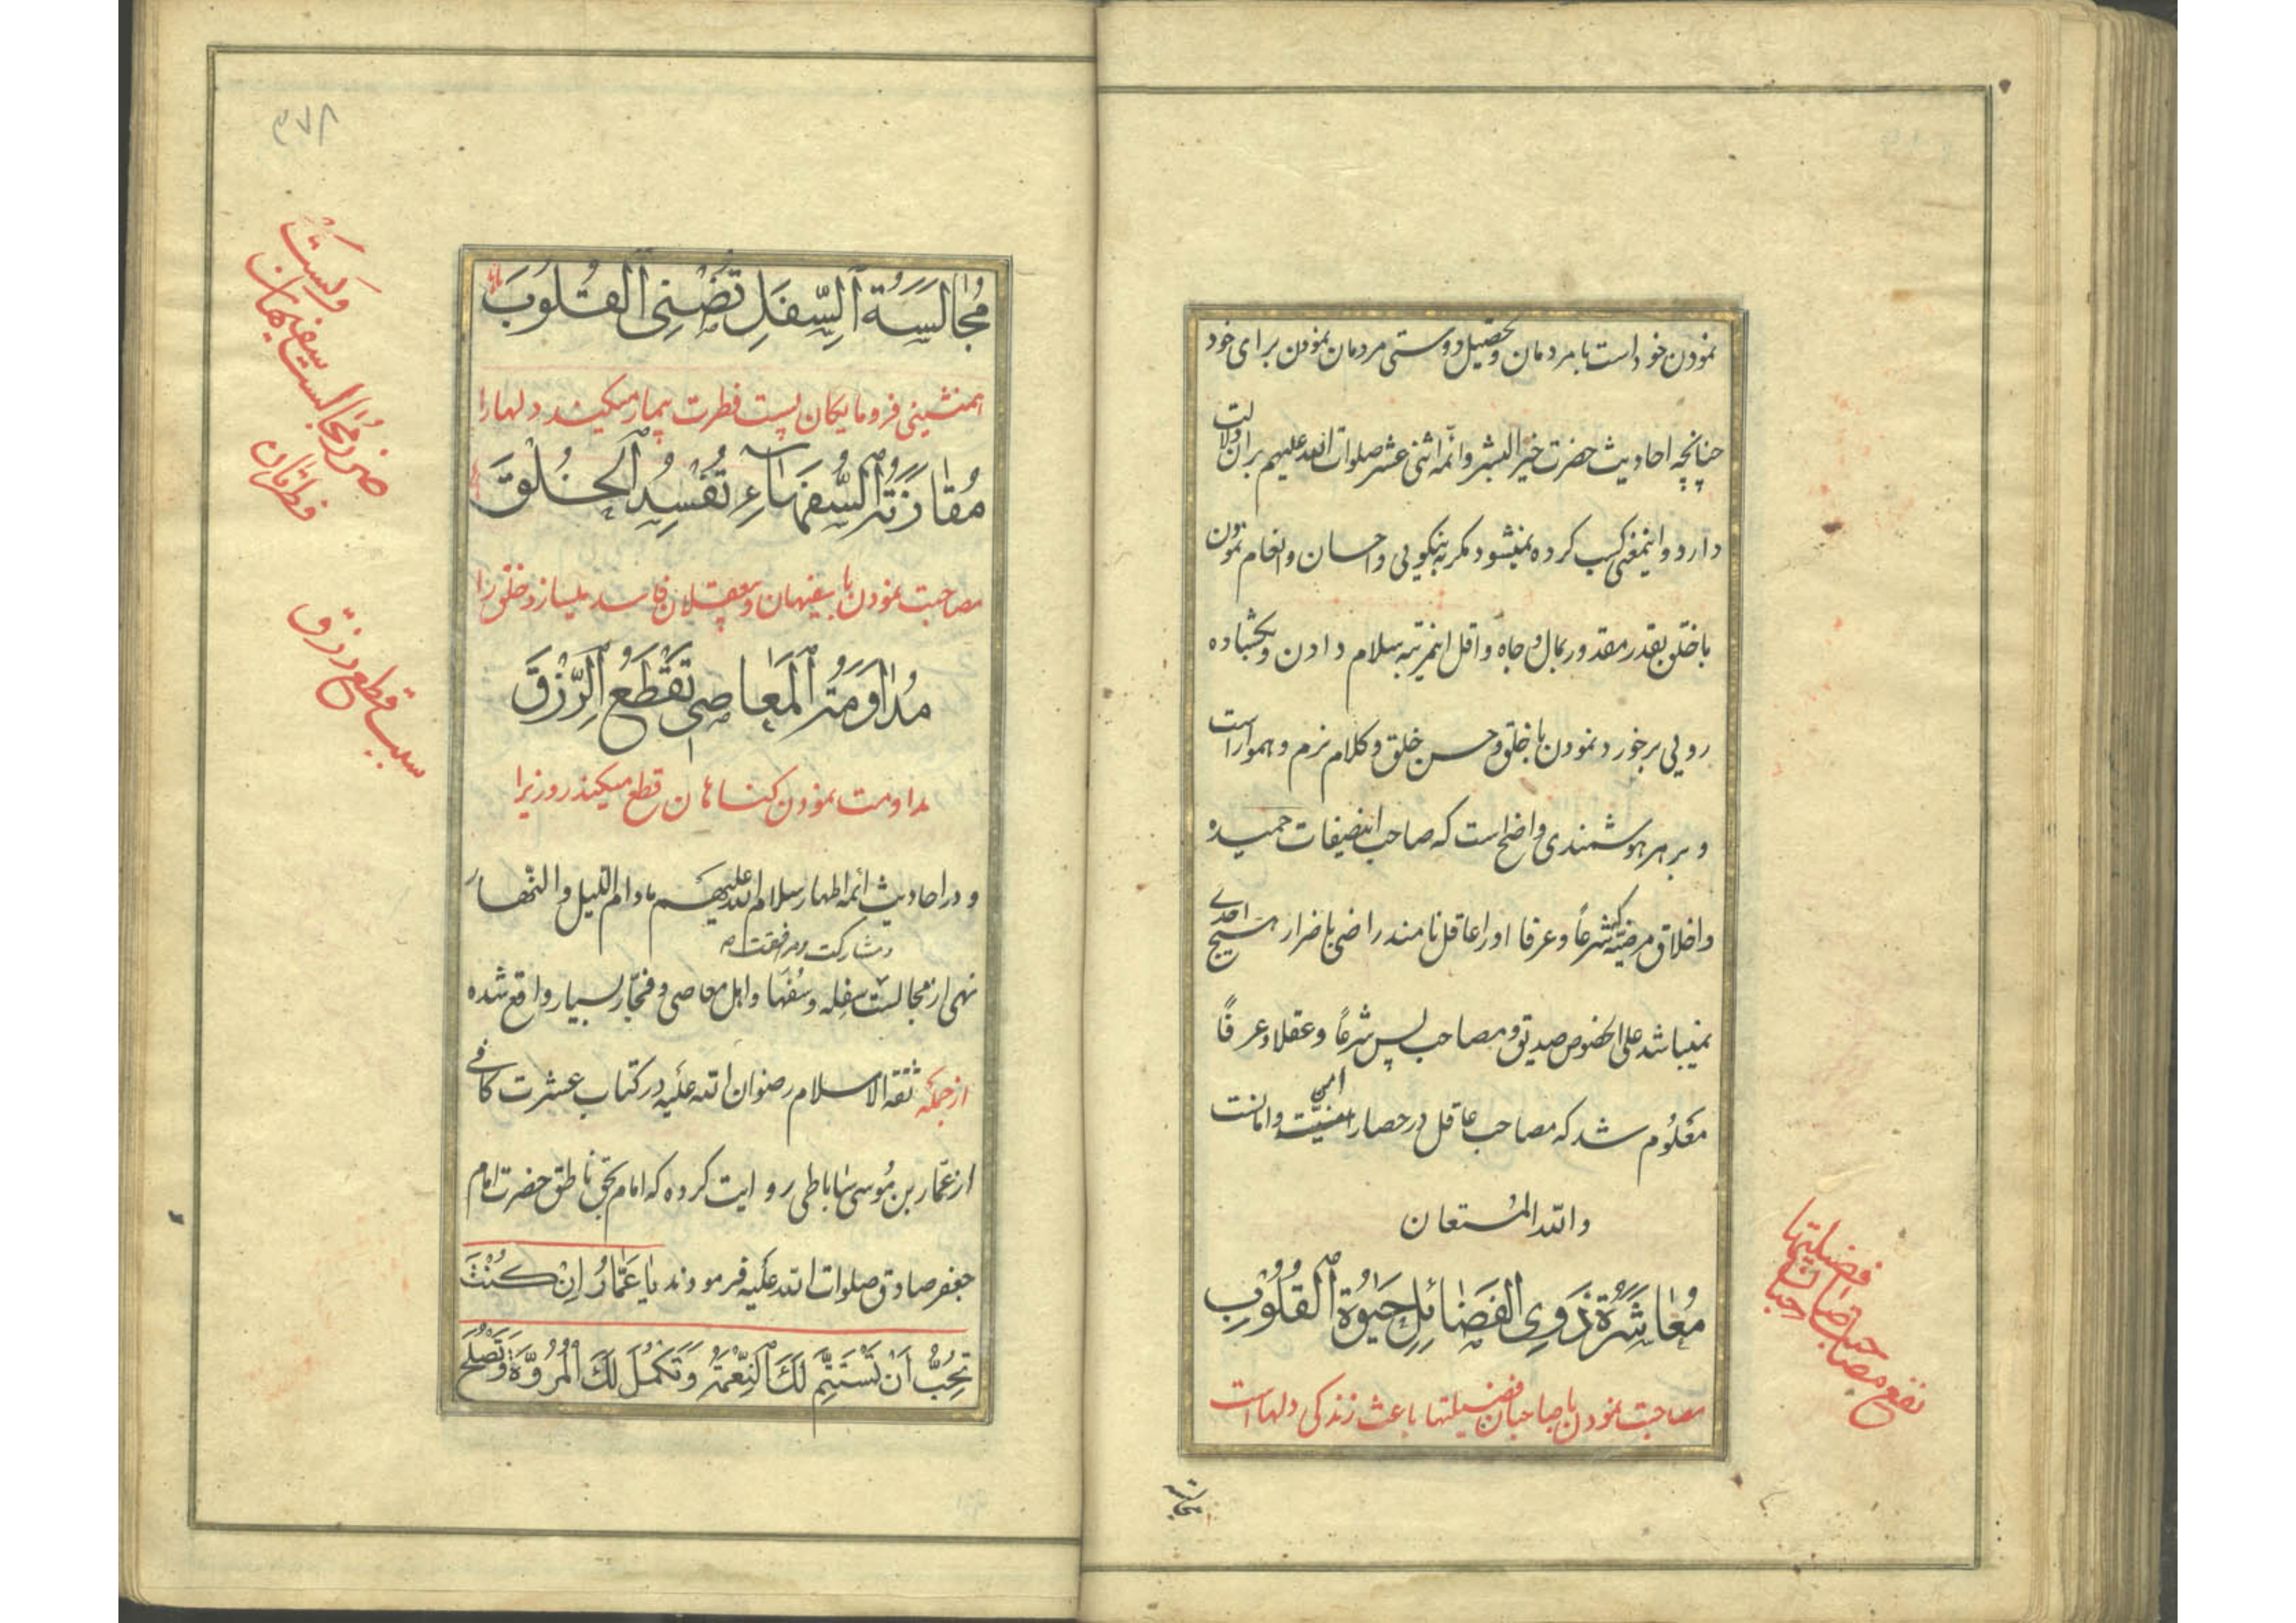 نمودن خود است با مردمان و تحصیل دوستی مردمان نمودن برای خود
چنانچه احادیث حضرت خیر البشر و ائمه اثنی عشر صلوات الله علیهم بر آن دلالت
دارد و اینمعنی کسب کرده نمیشود مگر به نیکویی و احسان و انعام نمودن
با خلق بقدر مقدور بمال و جاه و اقل اینمرتبه سلام دادن و بگشاده
رویی برخورد نمودن با خلق و حسن خلق و کلام نرم و هموار است
و بر هر هوشمندی واضح است که صاحب اینصفات حمیده
و اخلاق مرضیه که شرعاً و عرفا او را عاقل نامند راضی باضرار هیچ احدی
نمیباشد علی الخصوص صدیق و مصاحب پس شرعاً و عقلا و عرفاً
معلوم شد که مصاحب عاقل در حصار امنیت و امانت
والله المستعان
مُعاشَرَةُ ذَوِی الفَضائِلِ حَیٰوةُ القُلُوبِ
مصاحبت نمودن با صاحبان فضیلتها باعث زندگی دلها است
نفع مصاحبت صاحبان فضیلتها
مجالسة
۳۷۸
مُجالَسَةُ السِّفَلِ تُضْنِی القُلُوبَ
همنشینی فرومایگان پست فطرت بیمار میکند دلها را
مُقارَنَةُ السُّفَهاءِ تُفْسِدُ الخُلْقَ
مصاحبت نمودن با سفیهان و بیعقلان فاسد میسازد خلق را
مُداوَمَةُ المَعاصِی تَقْطَعُ الرِّزْقَ
مداومت نمودن گناهان قطع میکند روزی را
و در احادیث ائمه اطهار سلام الله علیهم مادام اللیل و النهار
و مشارکت و مرافقت
نهی از مجالست سفله و سفها و اهل معاصی و فجّار بسیار واقع شده
از جمله ثقة الاسلام رضوان الله علیه در کتاب عشرت کافی
از عمّار بن موسی ساباطی روایت کرده که امام بحق ناطق حضرت امام
جعفر صادق صلوات الله علیه فرمودند یا عَمّارُ اِنْ کُنْتَ
تُحِبُّ اَنْ تَسْتَتِمَّ لَكَ النِّعْمَةُ وَتَكْمُلَ لَكَ الْمُرُوَّةُ وَتَصْلُحَ
ضرر مجالست سفیهان
سبب قطع رزق